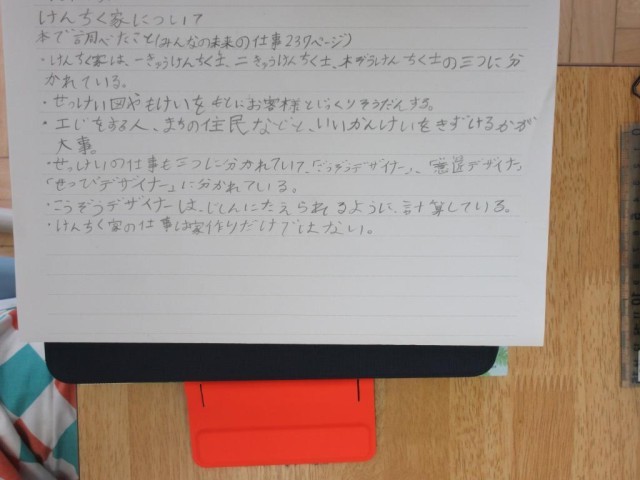 けんちく家について
本で調べたこと(みんなの未来の仕事237ページ)
・けんちく家は、一きゅうけんちく士、二きゅうけんちく士、木ぞうけんちく士の三つに分
かれている。
・せっけい図やもけいをもとにお客様とじっくりそうだんする。
・工じをする人、まちの住民などと、いいかんけいをきずけるかが
大事。
・せっけいの仕事も三つに分かれていて、「こうぞうデザイナー」、「意匠デザイナ」
「せつびデザイナー」に分かれている。
・こうぞうデザイナーは、じしんにたえられるように、計算している。
・けんちく家の仕事は家作りだけではない。